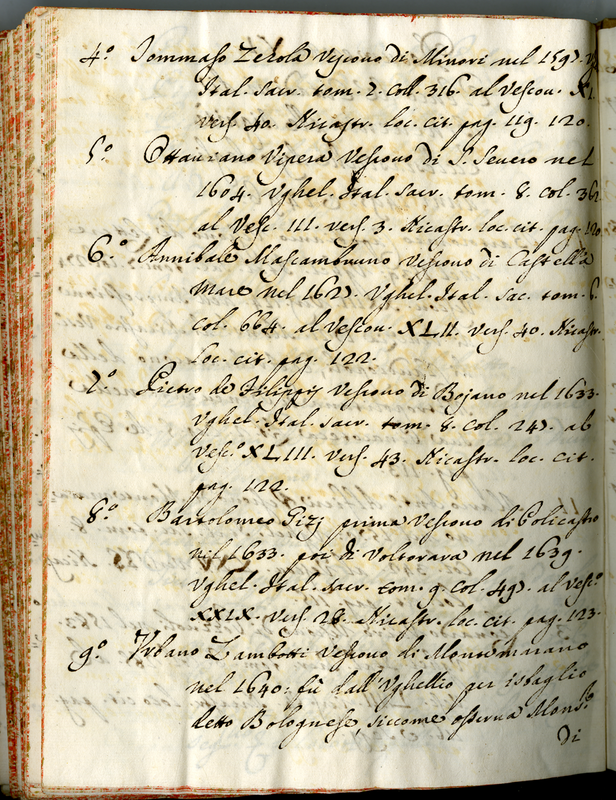 4.º Tommaso Zerola Vescovo di Minori nel 1597.
Ital. Sacr. tom. 7. coll. 316. al Vescov. XI.
vers. 40. Nicastr. loc. cit. pag. 119. 120.
5.º Ottaviano Vipera Vescovo di S. Severo nel
1604. Vghel. Ital. Sacr. tom. 8. col. 362
al Vesc. III. vers. 3. Nicastr. loc. cit. pag. 120
6.º Annibale Mascambruno Vescovo di Castell'a
Mare nel 1627. Vghel. Ital. Sac. tom. 6.
col. 664. al Vescov. XLII. vers. 40. Nicastr.
loc. cit. pag. 122.
7.º Pietro de Filippij Vescovo di Bojano nel 1633.
Vghel. Ital. Sacr. tom. 8. col. 247. al
Vesc.º XLIII. vers. 43. Nicastr. loc. cit.
pag. 122.
8.º Bartolomeo Gizj prima Vescovo di Policastro
nel 1633. poi di Voltorara nel 1639.
Vghel. Ital. Sacr. tom. 9 col. 497. al Vesc.º
XXIX. vers. 28. Nicastr. loc. cit. pag. 123.
9.º Vrbano Zambotti Vescovo di Montemarano
nel 1640: fù dall'Vghellio per isbaglio
detto Bolognese, siccome osserva Mons.r
di